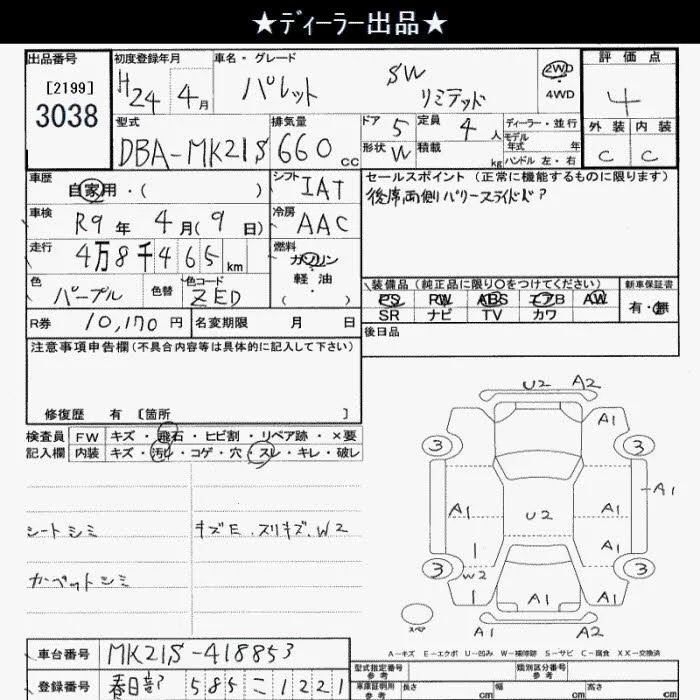 ★ディーラー出品★
出品番号
[2199]
3038
初度登録年月
H24 4月
車名・グレード
パレット SW リミテッド
2WD
4WD
評価点
4
外装 内装
C C
型式
DBA-MK21S
排気量
660 cc
ドア 5
定員 4 人
形状 W
積載 kg
ディーラー・並行
モデル
年式 年
ハンドル 左・右
車歴
自家用・( )
シフト
IAT
車検
R9年 4月(9日)
冷房
AAC
走行
4万8千465 km
燃料
ガソリン
軽油
( )
色
パープル
色替
色コード
ZED
セールスポイント (正常に機能するものに限ります)
後席両側パワースライドドア
装備品(純正品に限り○をつけてください)
新車保証書
PS PW ABS エアB AW
SR ナビ TV カワ
有・無
R券
10,170 円
名変期限 月 日
後日品
注意事項申告欄(不具合内容等は具体的に記入して下さい)
修復歴 有 [箇所 ]
検査員
記入欄
FW キズ・飛石・ヒビ割・リペア跡・×要
内装 キズ・汚レ・コゲ・穴・スレ・キレ・破レ
シートシミ
キズE.スリキズ.W2
カーペットシミ
U2 A2
A1
3 3
A1
A1 U2 A1
A1
3 3
W2
A1 A1
スペア
A1 A2
A-キズ E-エクボ U-凹み W-補修跡 S-サビ C-腐食 XX-交換済
車台番号
MK21S-418853
登録番号
春日部 585 こ 1221
型式指定番号
参考
類別区分番号
参考
車庫証明用
参考
長さ cm
幅 cm
高さ cm